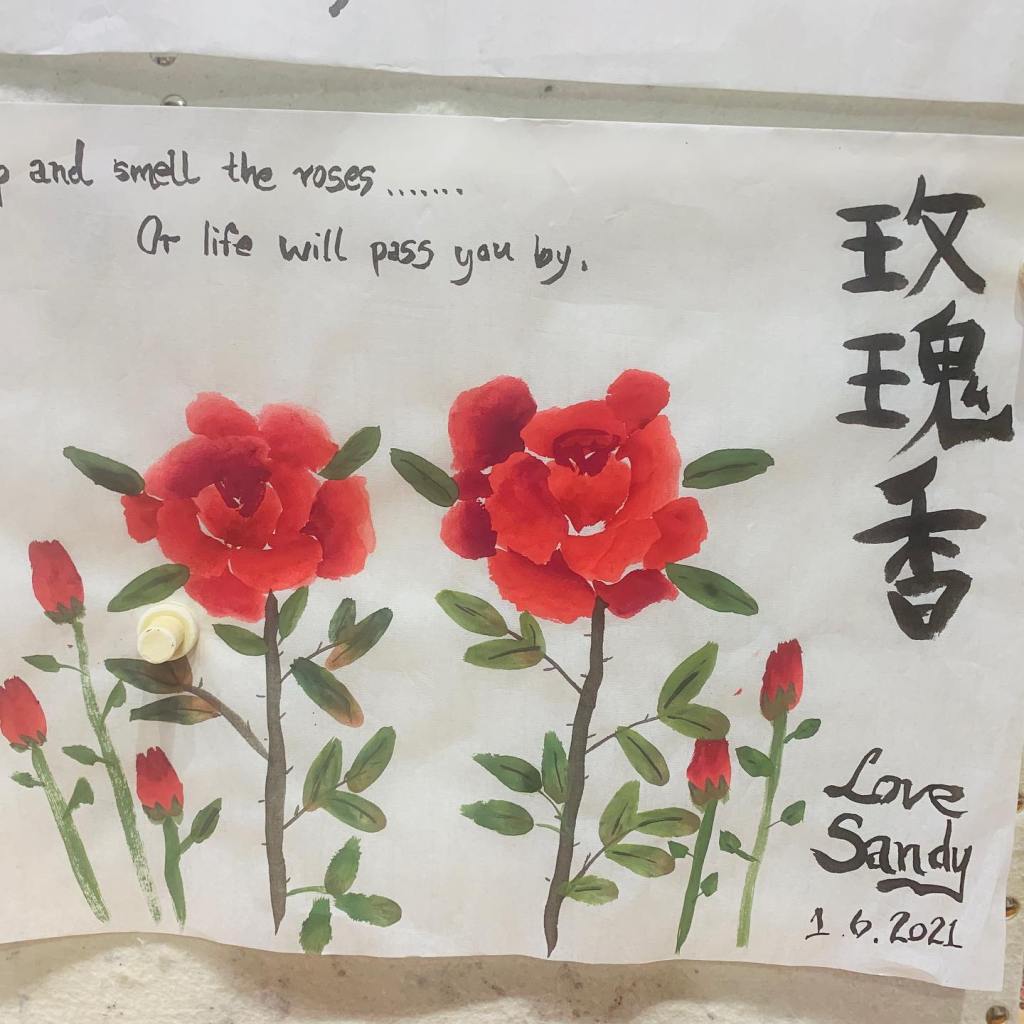 and smell the roses.......
Or life will pass you by.
玫瑰香
Love
Sandy
1.6.2021